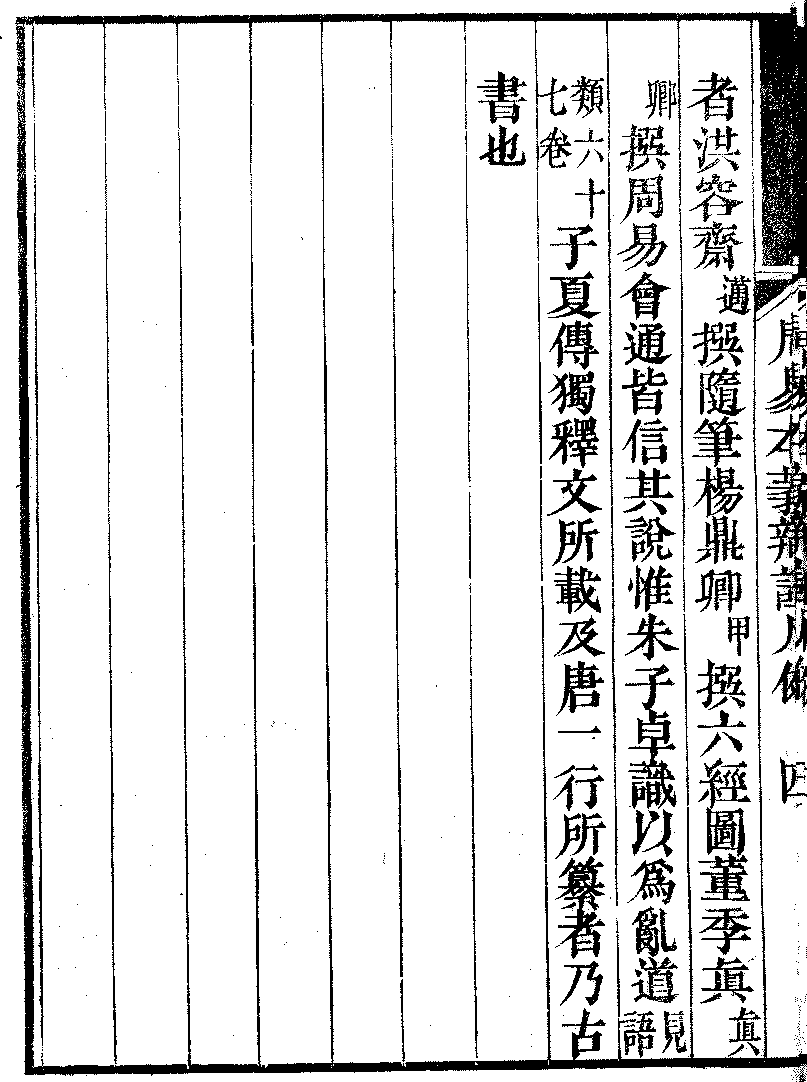 周易本義辨證凡例　四
者洪容齋邁撰隨筆楊鼎卿甲撰六經圖董季眞眞
卿撰周易會通皆信其說惟朱子卓識以爲亂道見語
類六十七卷子夏傳獨釋文所載及唐一行所纂者乃古
書也